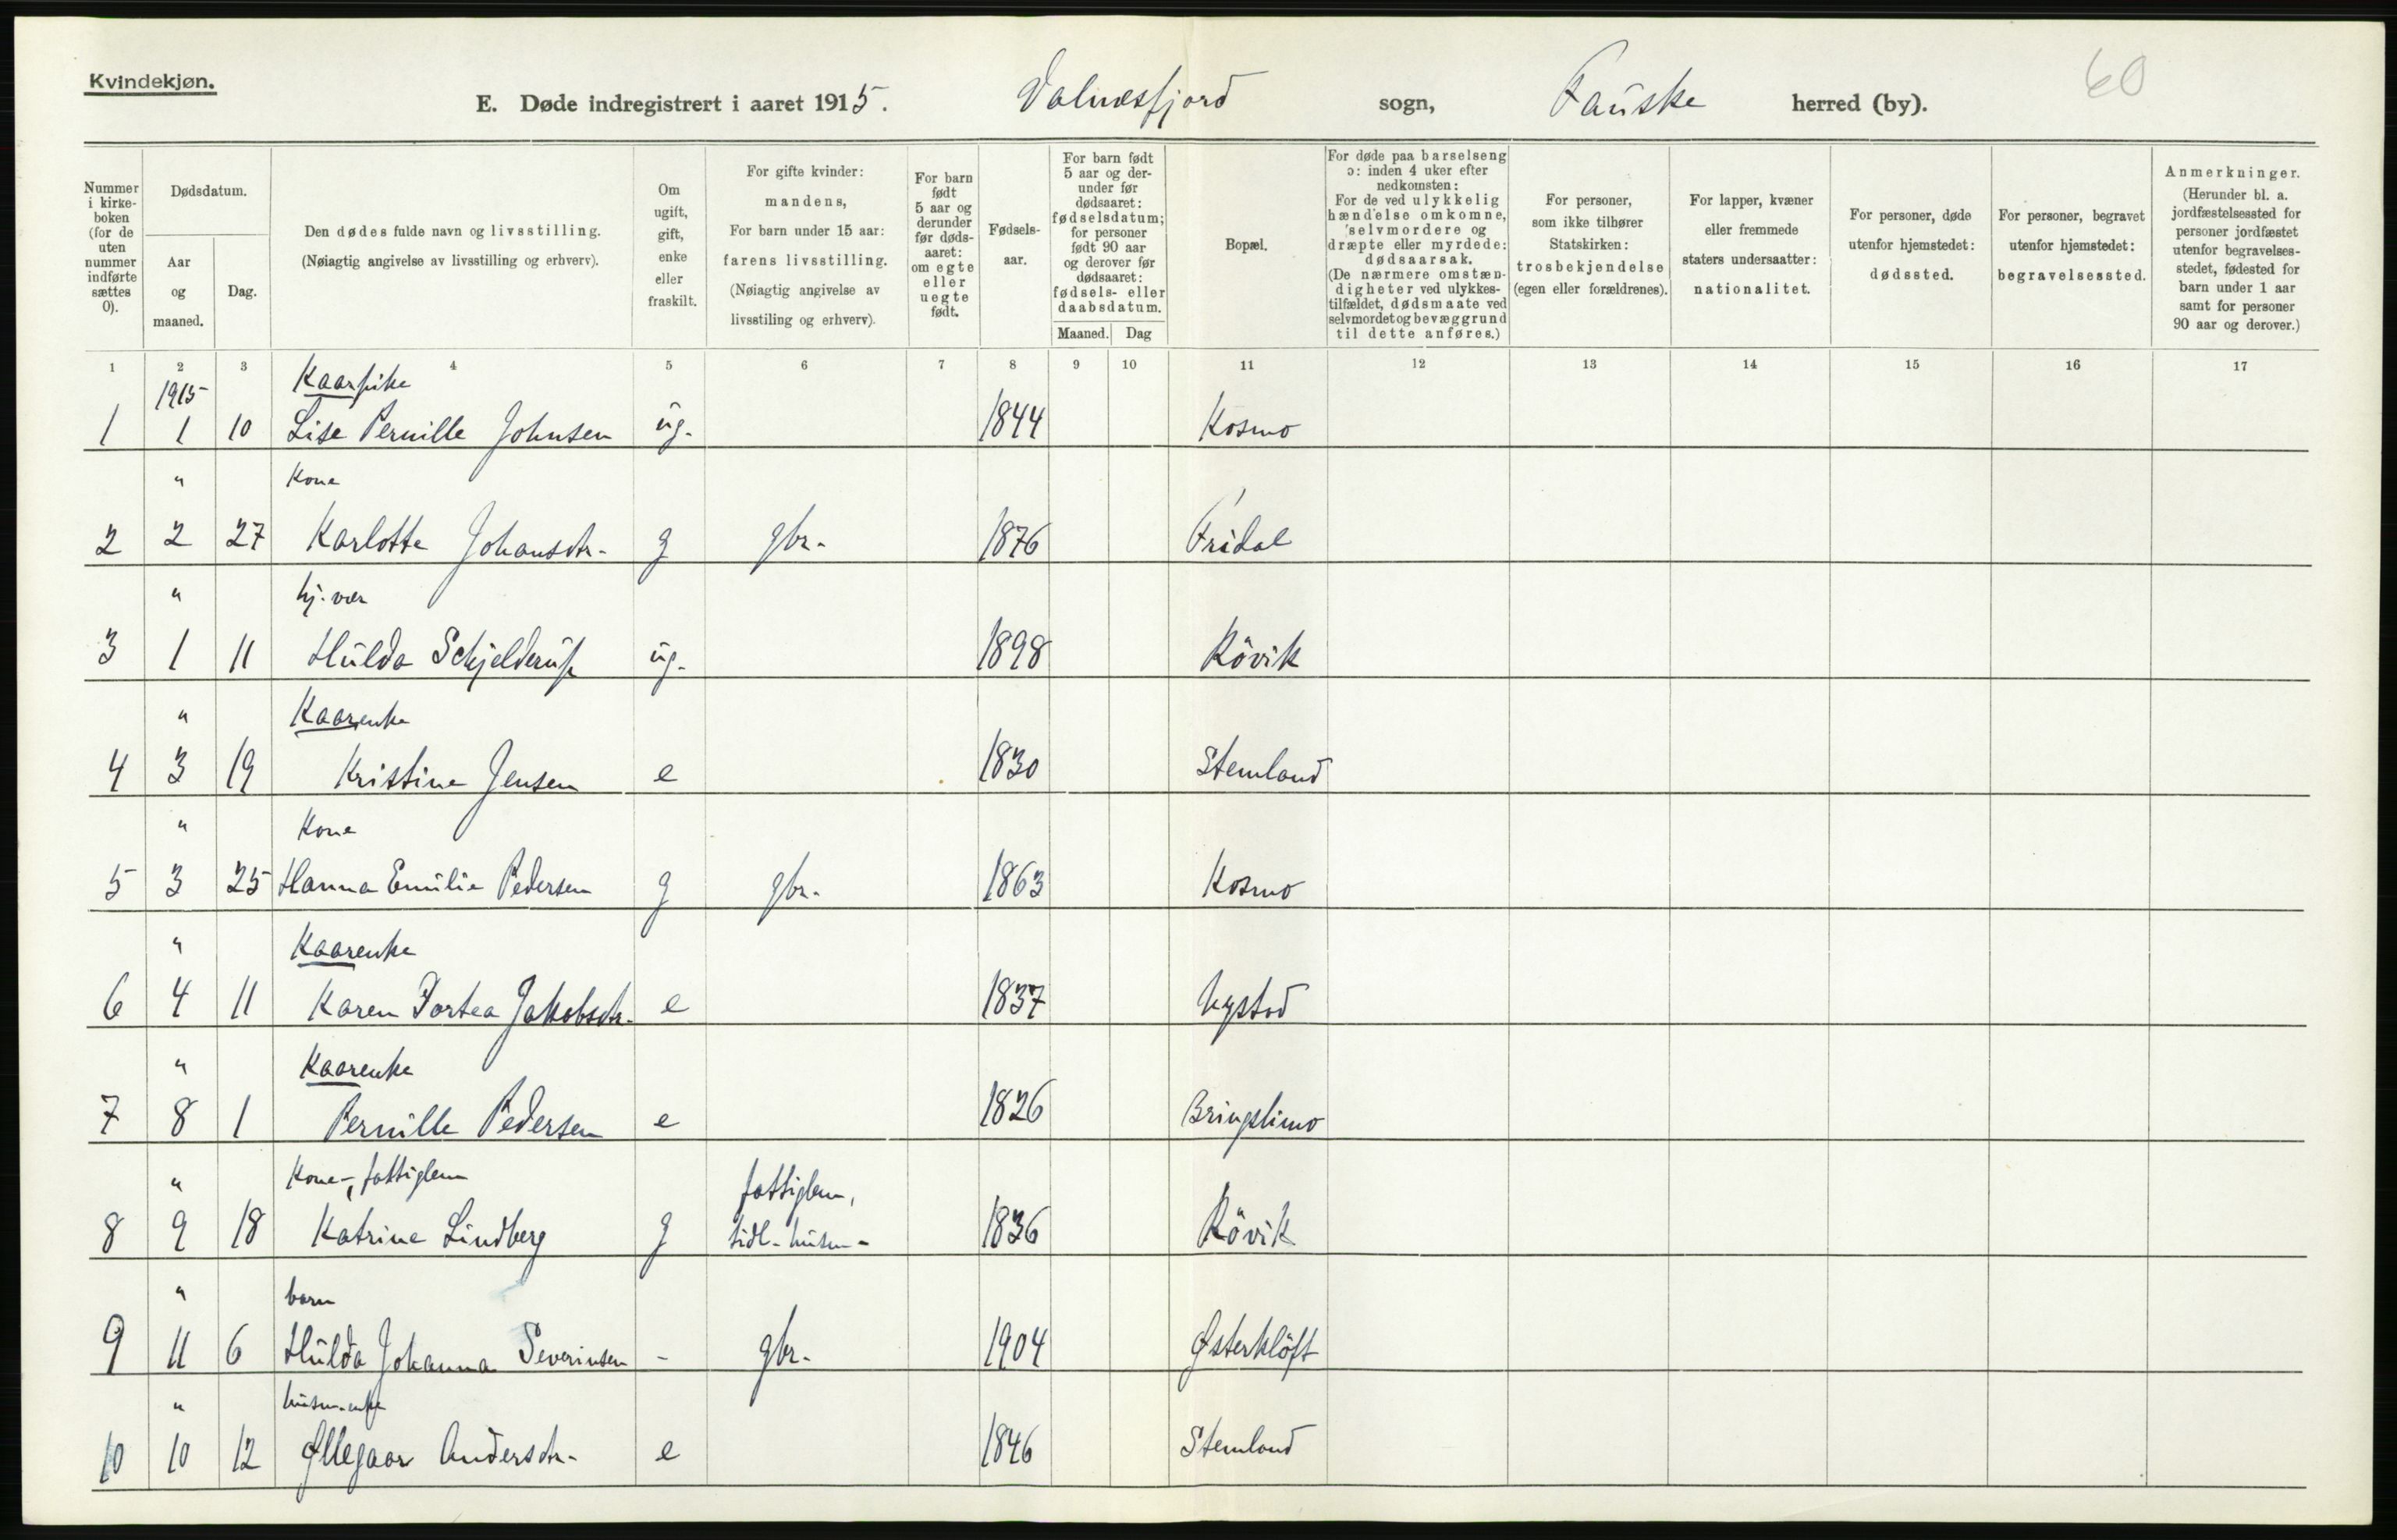 Kvindekjøn.
E. Døde indregistrert i aaret 1915. Valnesfjord sogn, Fauske herred (by).
60
Nummer i kirkeboken (for de uten nummer indførte sættes 0).
Dødsdatum.
Aar og maaned.
Dag.
Den dødes fulde navn og livsstilling.
(Nøiagtig angivelse av livsstilling og erhverv).
Om ugift, gift, enke eller fraskilt.
For gifte kvinder: mandens,
For barn under 15 aar: farens livsstilling.
(Nøiagtig angivelse av livsstiling og erhverv).
For barn født 5 aar og derunder før dødsaaret: om egte eller uegte født.
Fødselsaar.
For barn født 5 aar og derunder før dødsaaret: fødselsdatum; for personer født 90 aar og derover før dødsaaret: fødsels- eller daabsdatum.
Maaned. Dag
Bopæl.
For døde paa barselseng ɔ: inden 4 uker efter nedkomsten:
For de ved ulykkelig hændelse omkomne, selvmordere og dræpte eller myrdede: dødsaarsak.
(De nærmere omstændigheter ved ulykkestilfældet, dødsmaate ved selvmordet og bevæggrund til dette anføres.)
For personer, som ikke tilhører Statskirken: trosbekjendelse (egen eller forældrenes).
For lapper, kvæner eller fremmede staters undersaatter: nationalitet.
For personer, døde utenfor hjemstedet: dødssted.
For personer, begravet utenfor hjemstedet: begravelsessted.
Anmerkninger.
(Herunder bl. a. jordfæstelsessted for personer jordfæstet utenfor begravelsesstedet, fødested for barn under 1 aar samt for personer 90 aar og derover.)
1 2 3 4 5 6 7 8 9 10 11 12 13 14 15 16 17
1915 Kaarpike
1 1 10 Lise Pernille Johnsen ug. 1844 Kosmo
" Kone
2 2 27 Karlotte Johansdr. g gbr. 1876 Fridal
" hj. vær
3 1 11 Hulda Schjelderup ug. 1898 Rövik
" Kaarenke
4 3 19 Kristine Jensen e 1830 Stemland
" Kone
5 3 25 Hanna Emilie Pedersen g gbr. 1863 Kosmo
" Kaarenke
6 4 11 Karen Dortea Jakobsdr. e 1837 Nystad
" Kaarenke
7 8 1 Pernille Pedersen e 1826 Bringslimo
" Kone-, fattiglem fattiglem,
8 9 18 Katrine Lindberg g tidl. husm. 1836 Rövik
" barn
9 11 6 Hulda Johanna Severinsen - gbr. 1904 Østerklöft
" husm.enke
10 10 12 Ollegaar Andersdr. e 1846 Stemland